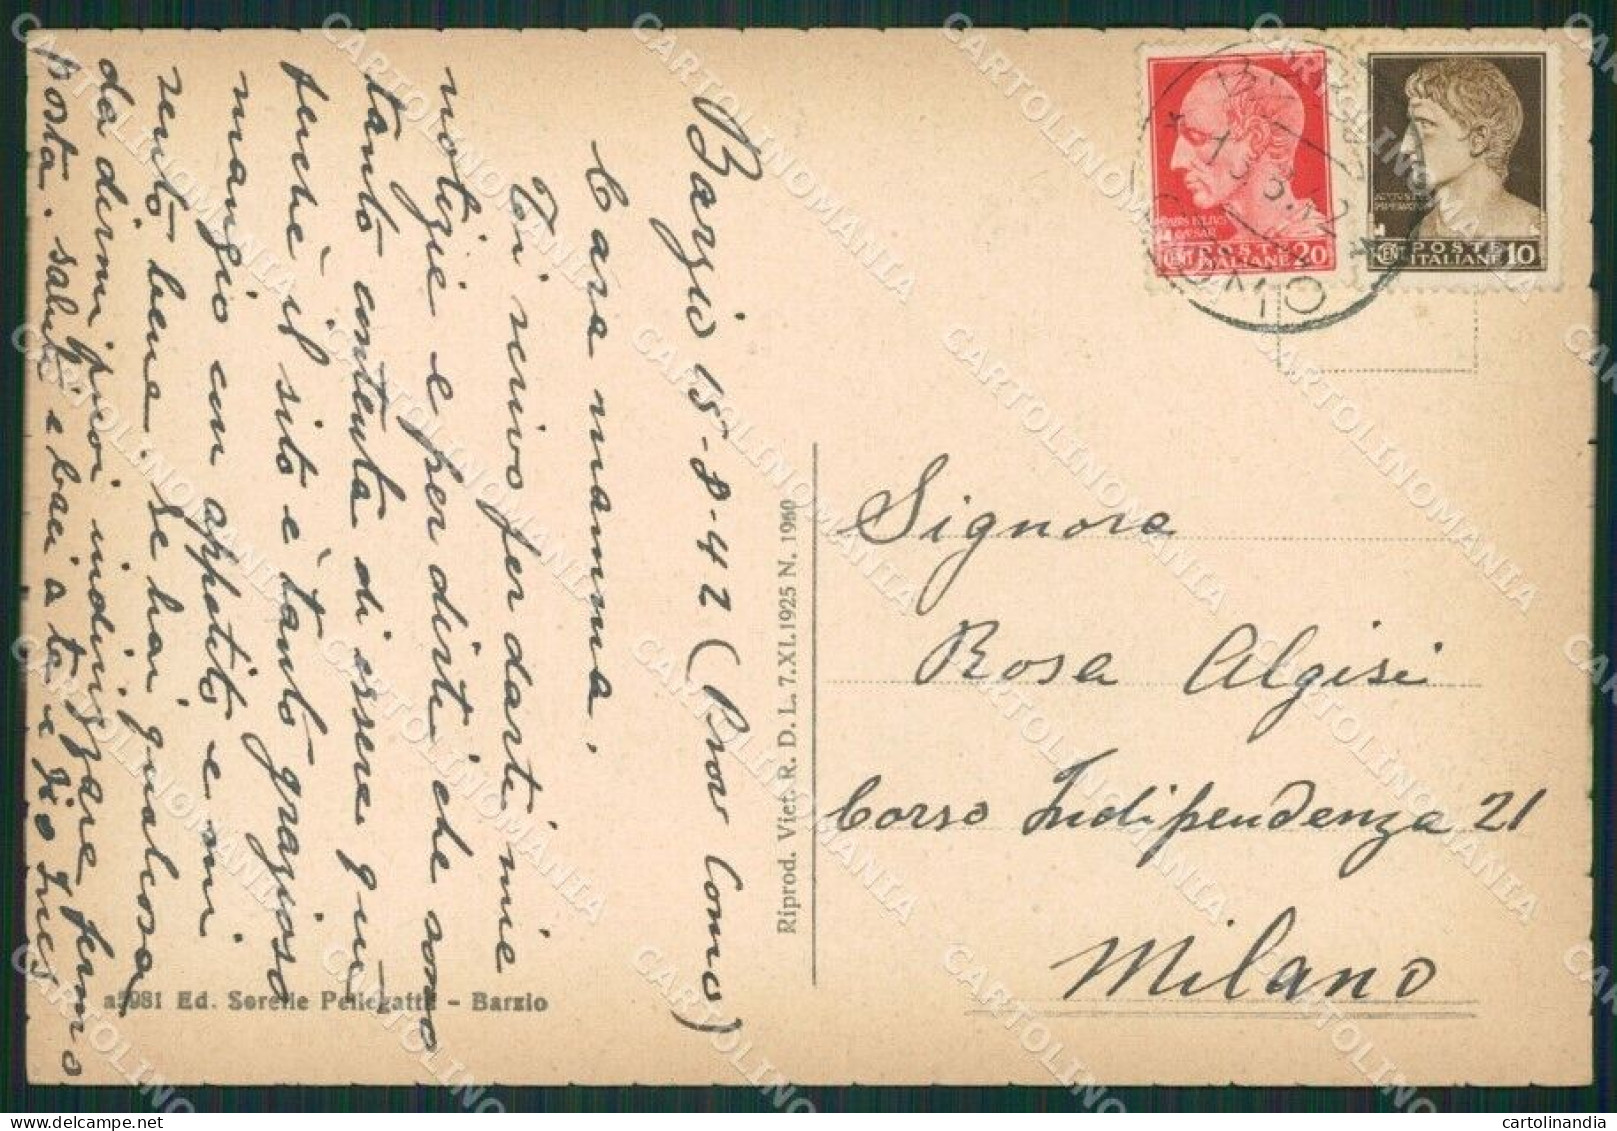 Barzio 15-8-42 (Prov Como)
Cara mamma,
Ti scrivo per darti mie
notizie e per dirti che sono
tanto contenta di essere qui
perchè il sito è tanto grazioso
mangio con appetito e mi
sento bene. Se hai qualcosa
da dirmi puoi indirizzare fermo
posta. saluti e baci a te e
Ines
a5981 Ed. Sorelle Pellegatta - Barzio
Riprod. Viet. R. D. L. 7.XI.1925 N. 1960
POSTE
ITALIANE
CENT 20
POSTE
ITALIANE
CENT 10
Signora
Rosa Algisi
Corso Indipendenza 21
Milano
CARTOLINOMANIA
cartolinandia